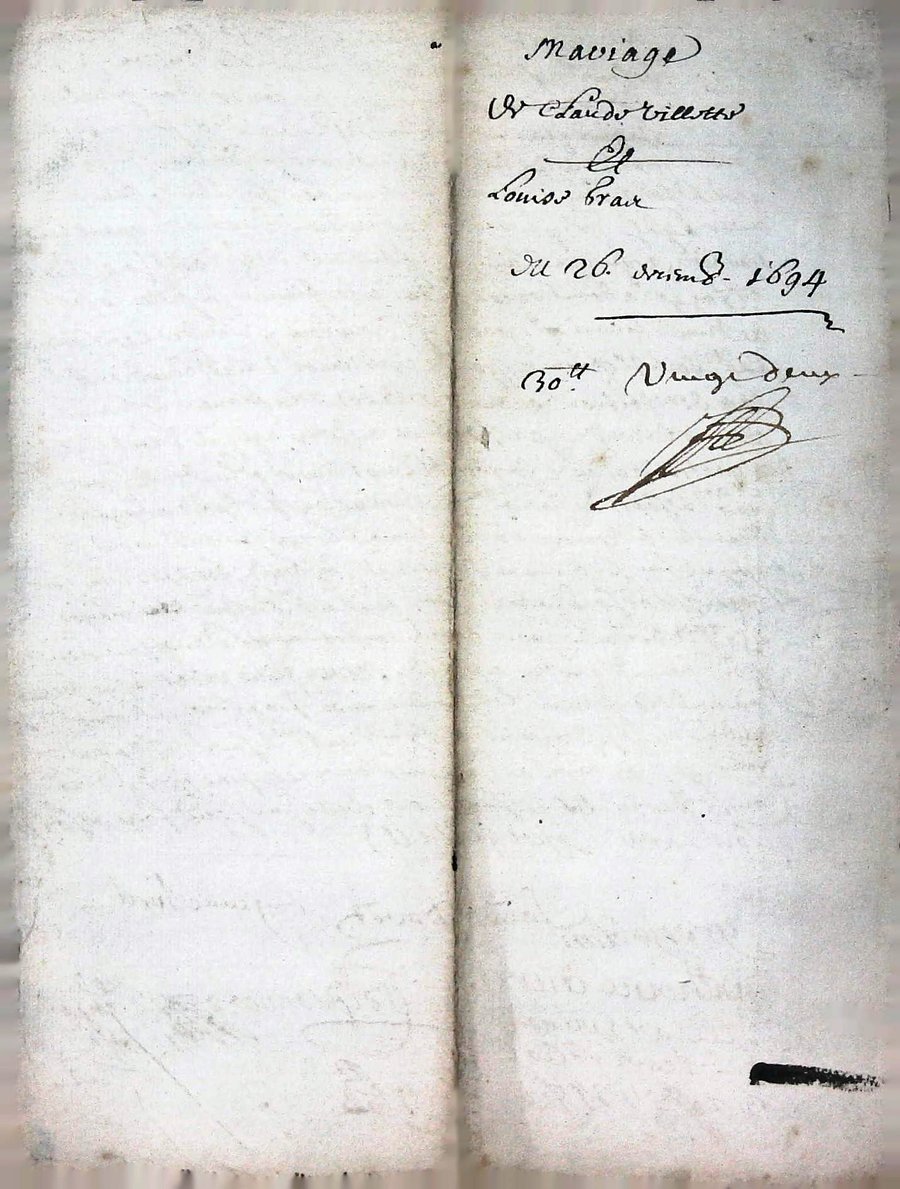 Mariage
de Claude villette
Et
Louise brac
du 26. decemb. 1694
30tt Vingt deux